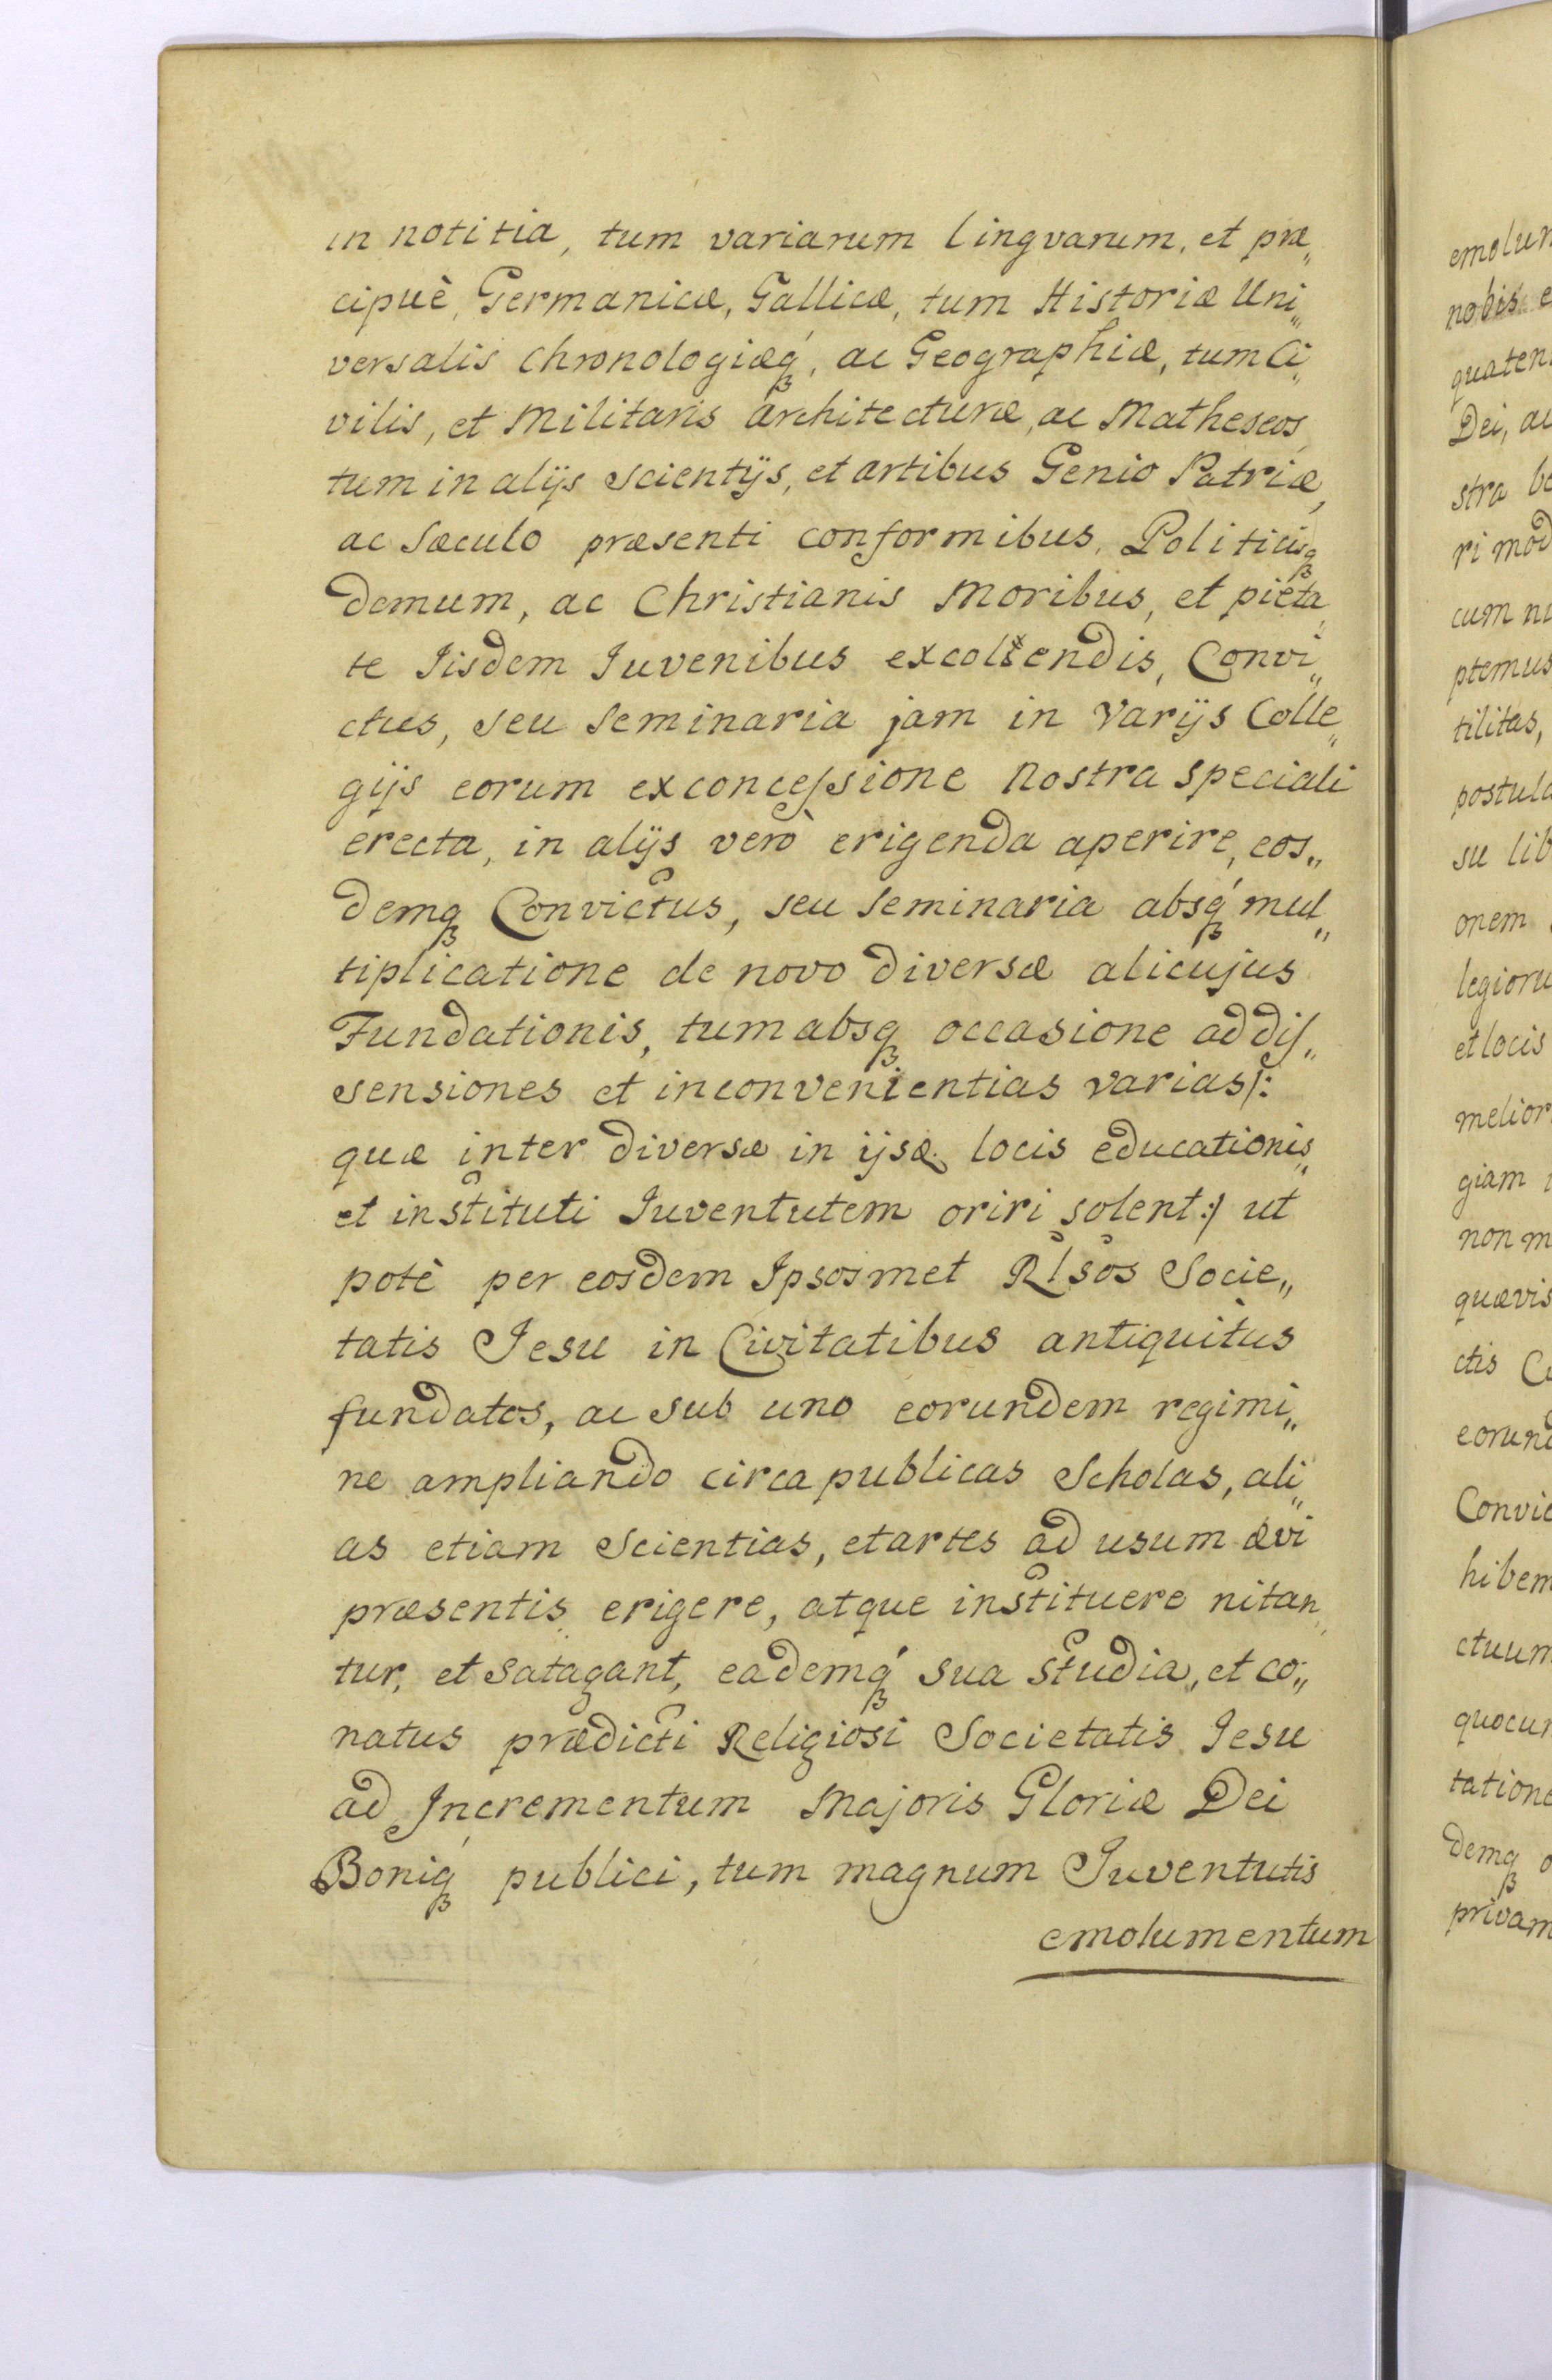 in notitia, tum variarum Lingvarum, et præ„
cipuè, Germanicæ, Gallicæ, tum Historiæ Uni„
versalis Chronologiæq́, ac Geographiæ, tum Ci„
vilis, et Militaris Architecturæ, ac Matheseos,
tum in alijs Scientijs, et artibus Genio Patriæ,
ac Sæculo præsenti conformibus, Politicisq
demum, ac Christianis Moribus, et pieta„
te Iisdem Iuvenibus excolendis, Convi„
ctus, seu Seminaria jam in Varijs Colle„
gijs eorum ex conceſsione Nostra Speciali
erecta, in alijs verò erigenda aperire, eos„
demq Convictus, seu Seminaria absq́ mul„
tiplicatione de novo diversæ alicujus
Fundationis, tum absq occasione ad diſ„
sensiones et inconvenientias varias /:
quæ inter diversæ in ijsd. locis educationis„
et instituti Iuventutem oriri solent :/ ut
potè per eosdem Ipsosmet Rlsos Socie„
tatis Jesu in Civitatibus antiquitùs
fundatos, ac sub uno eorundem regimi„
ne ampliando circa publicas Scholas, ali„
as etiam Scientias, et artes ad usum ævi
præsentis erigere, atque instituere nitan„
tur, et satagant, eademq́ sua studia, et co„
natus prædicti Religiosi Societatis Jesu
ad Incrementum Majoris Gloriæ Dei
Boniq́ publici, tum magnum Iuventutis
emolumentum
emolum
nobis e
quaten
Dei, ac
stra be
ri mod
cum ni
ptemus
tilitas,
postula
su lib
onem
legioru
et locis
melior
giam
non m
quævis
ctis C
eorund
Convic
hibem
ctuum
quocun
tatione
demq o
privam